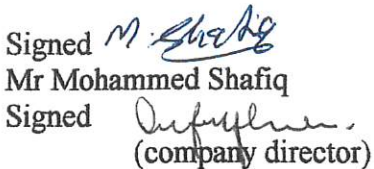 Signed M. Shafiq
Mr Mohammed Shafiq
Signed
(company director)